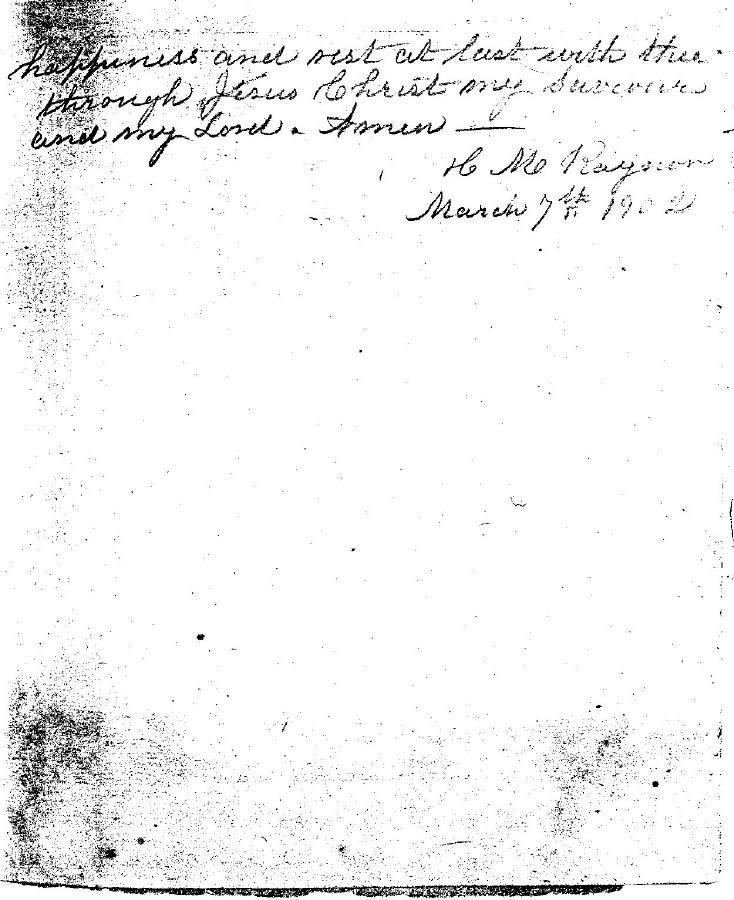 happiness and rest at last with thee.
through Jesus Christ my Saviour
and my Lord. Amen —
H M Raynor
March 7th 1902